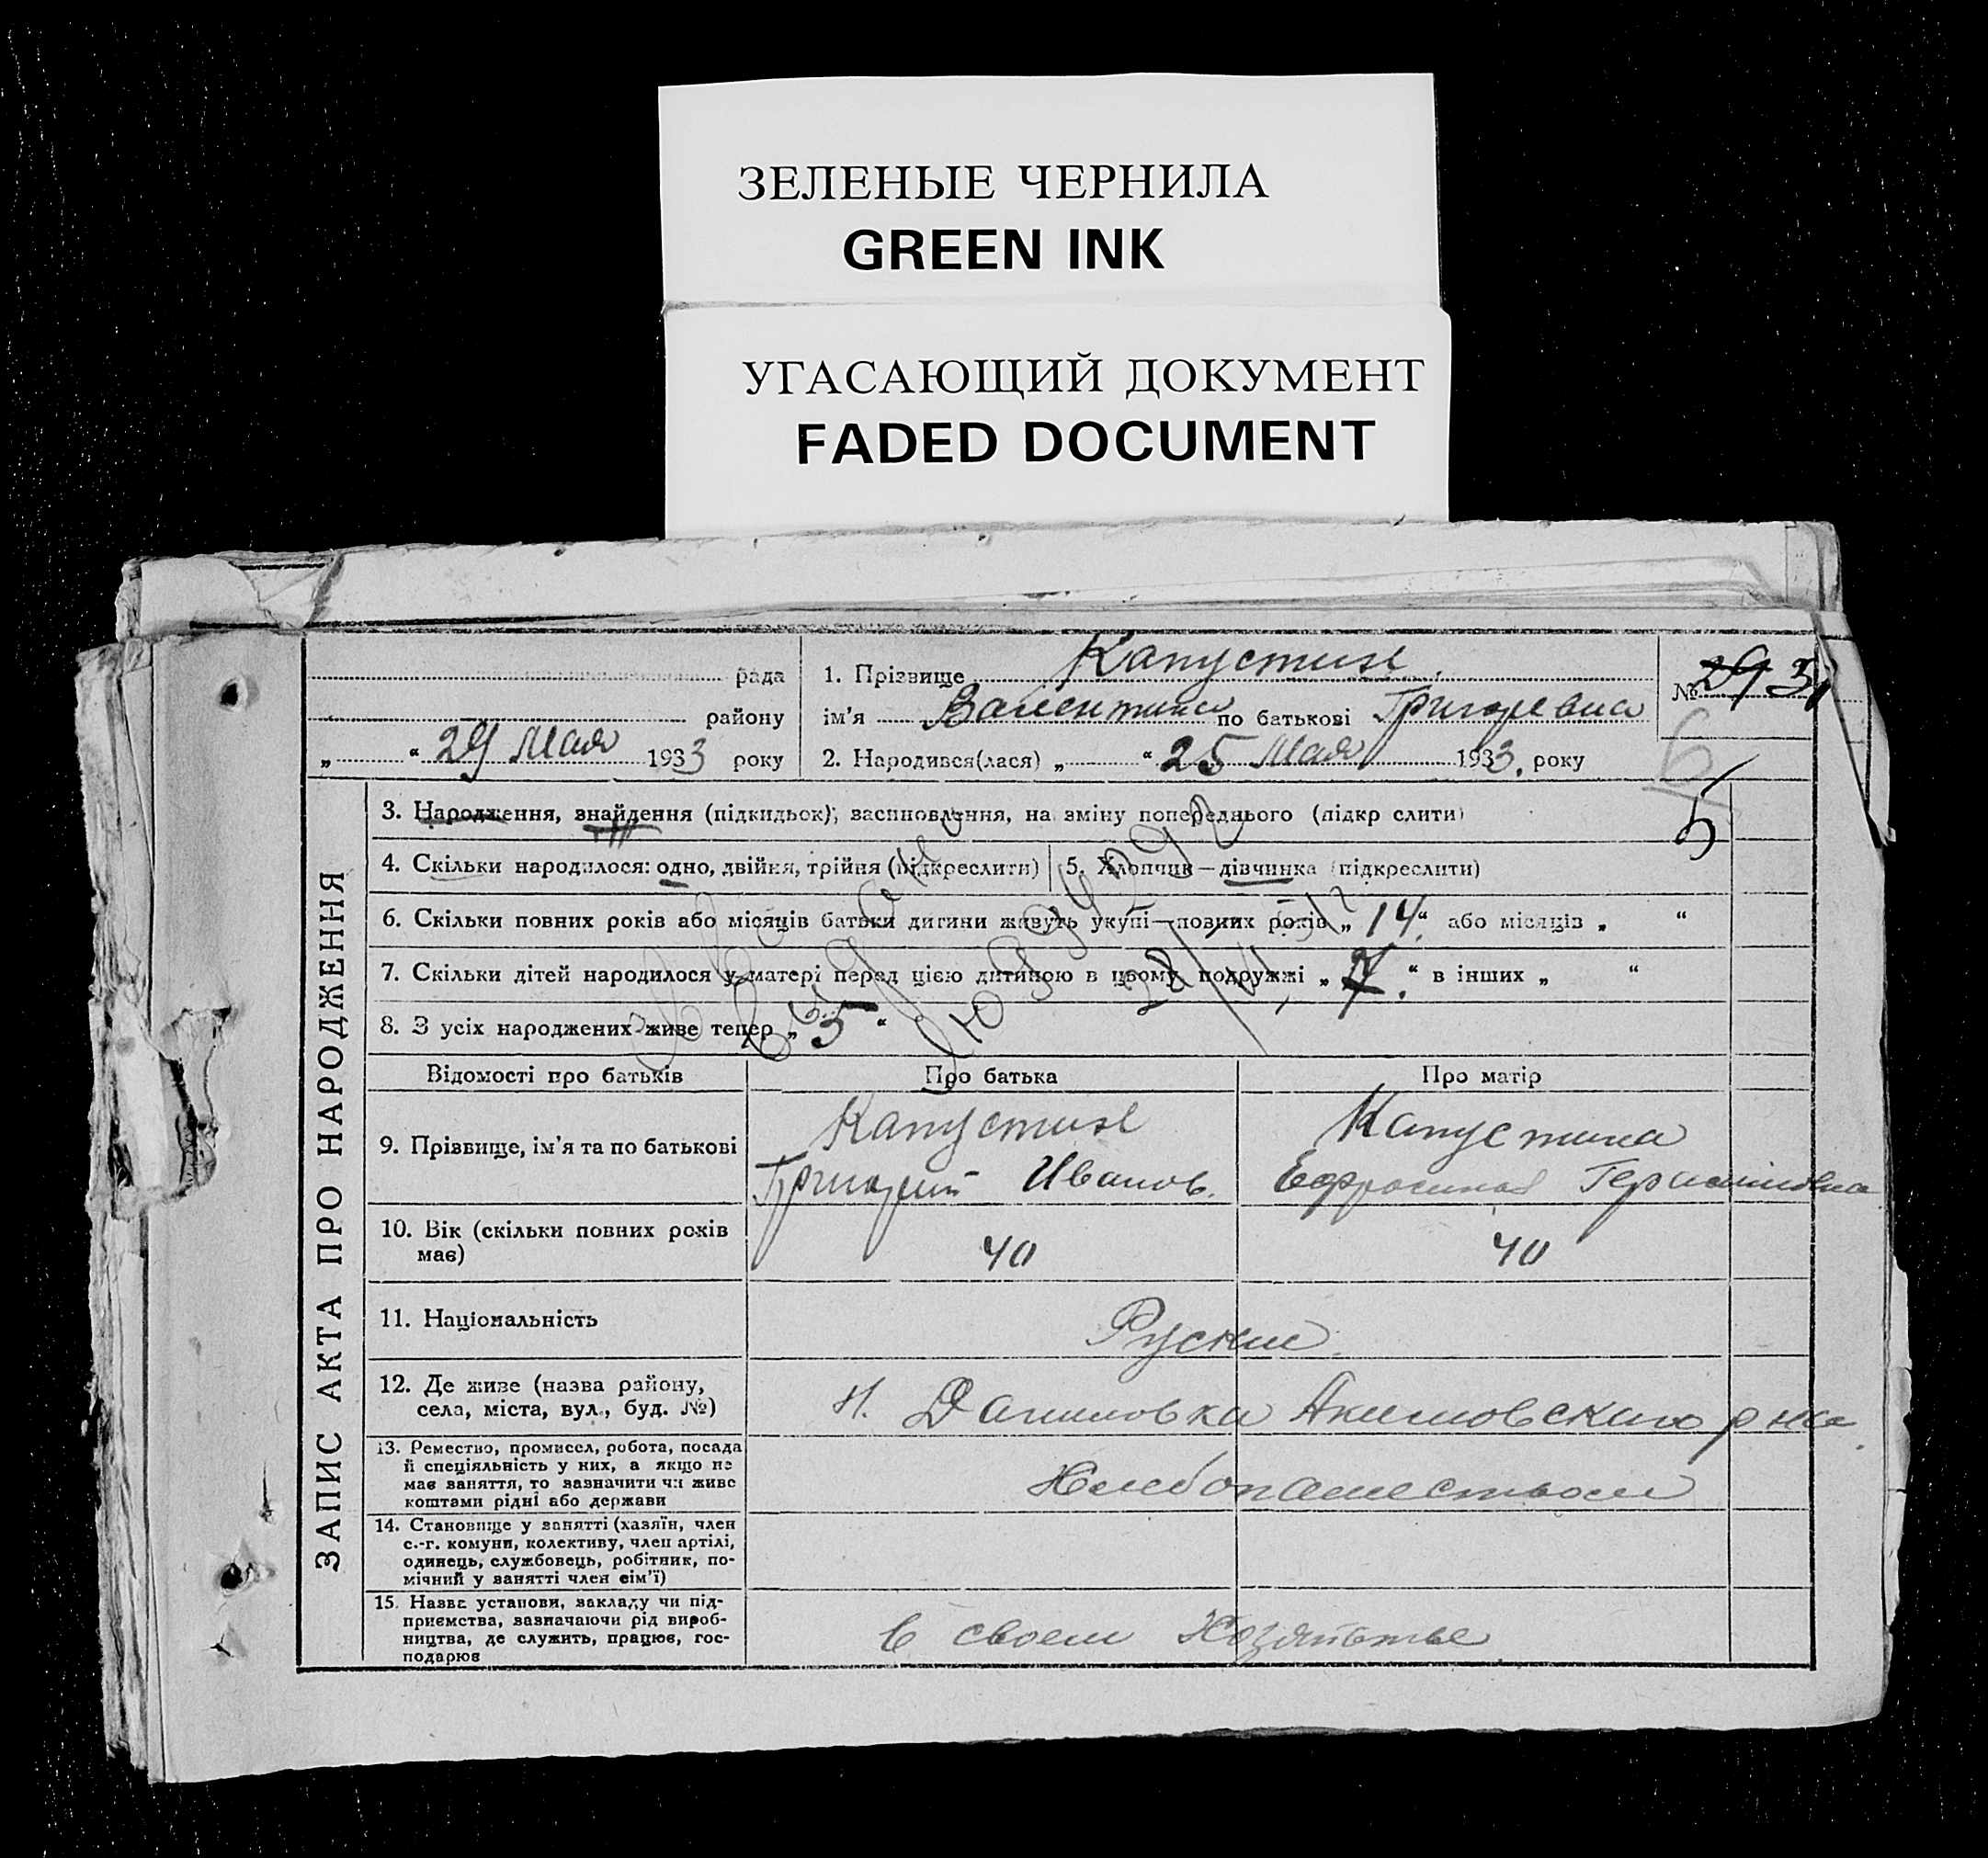 ЗЕЛЕНЫЕ ЧЕРНИЛА
GREEN INK
УГАСАЮЩИЙ ДОКУМЕНТ
FADED DOCUMENT
ЗАПИС АКТА ПРО НАРОДЖЕННЯ
рада
району
„ “ 29 Мая 1933 року
1. Прізвище Капустин
ім’я Валентина по батькові Григоревна
2. Народився(лася) „ “ 25 Мая 1933. року
№ 29 31
6
5
3. Народження, знайдення (підкидьок), засиновлення, на зміну попереднього (підкр слити)
4. Скільки народилося: одно, двійня, трійня (підкреслити)
5. Хлопчик—дівчинка (підкреслити)
6. Скільки повних років або місяців батьки дитини живуть укупі—повних років „ 14 “ або місяців „ “
7. Скільки дітей народилося у матері перед цією дитиною в цьому подружжі „ 7. “ в інших „ “
8. З усіх народжених живе тепер „ 5 “
Відомості про батьків
Про батька
Про матір
9. Прізвище, ім’я та по батькові
Капустин
Григорий Иванов.
Капустина
Ефросиния
10. Вік (скільки повних років
має)
40
40
11. Національність
Руские
12. Де живе (назва району,
села, міста, вул., буд. №)
Н. Даниловка Акимовского р на
13. Ремество, промисел, робота, посада
й спеціяльність у них, а якщо не
має заняття, то зазначити чи живе
коштами рідні або держави
Хлебопашеством
14. Становище у занятті (хазяїн, член
с.-г. комуни, колективу, член артілі,
одинець, службовець, робітник, по-
мічний у занятті член сім’ї)
15. Назва установи, закладу чи під-
приємства, зазначаючи рід вироб-
ництва, де служить, працює, гос-
подарює
в своем хозяйстве